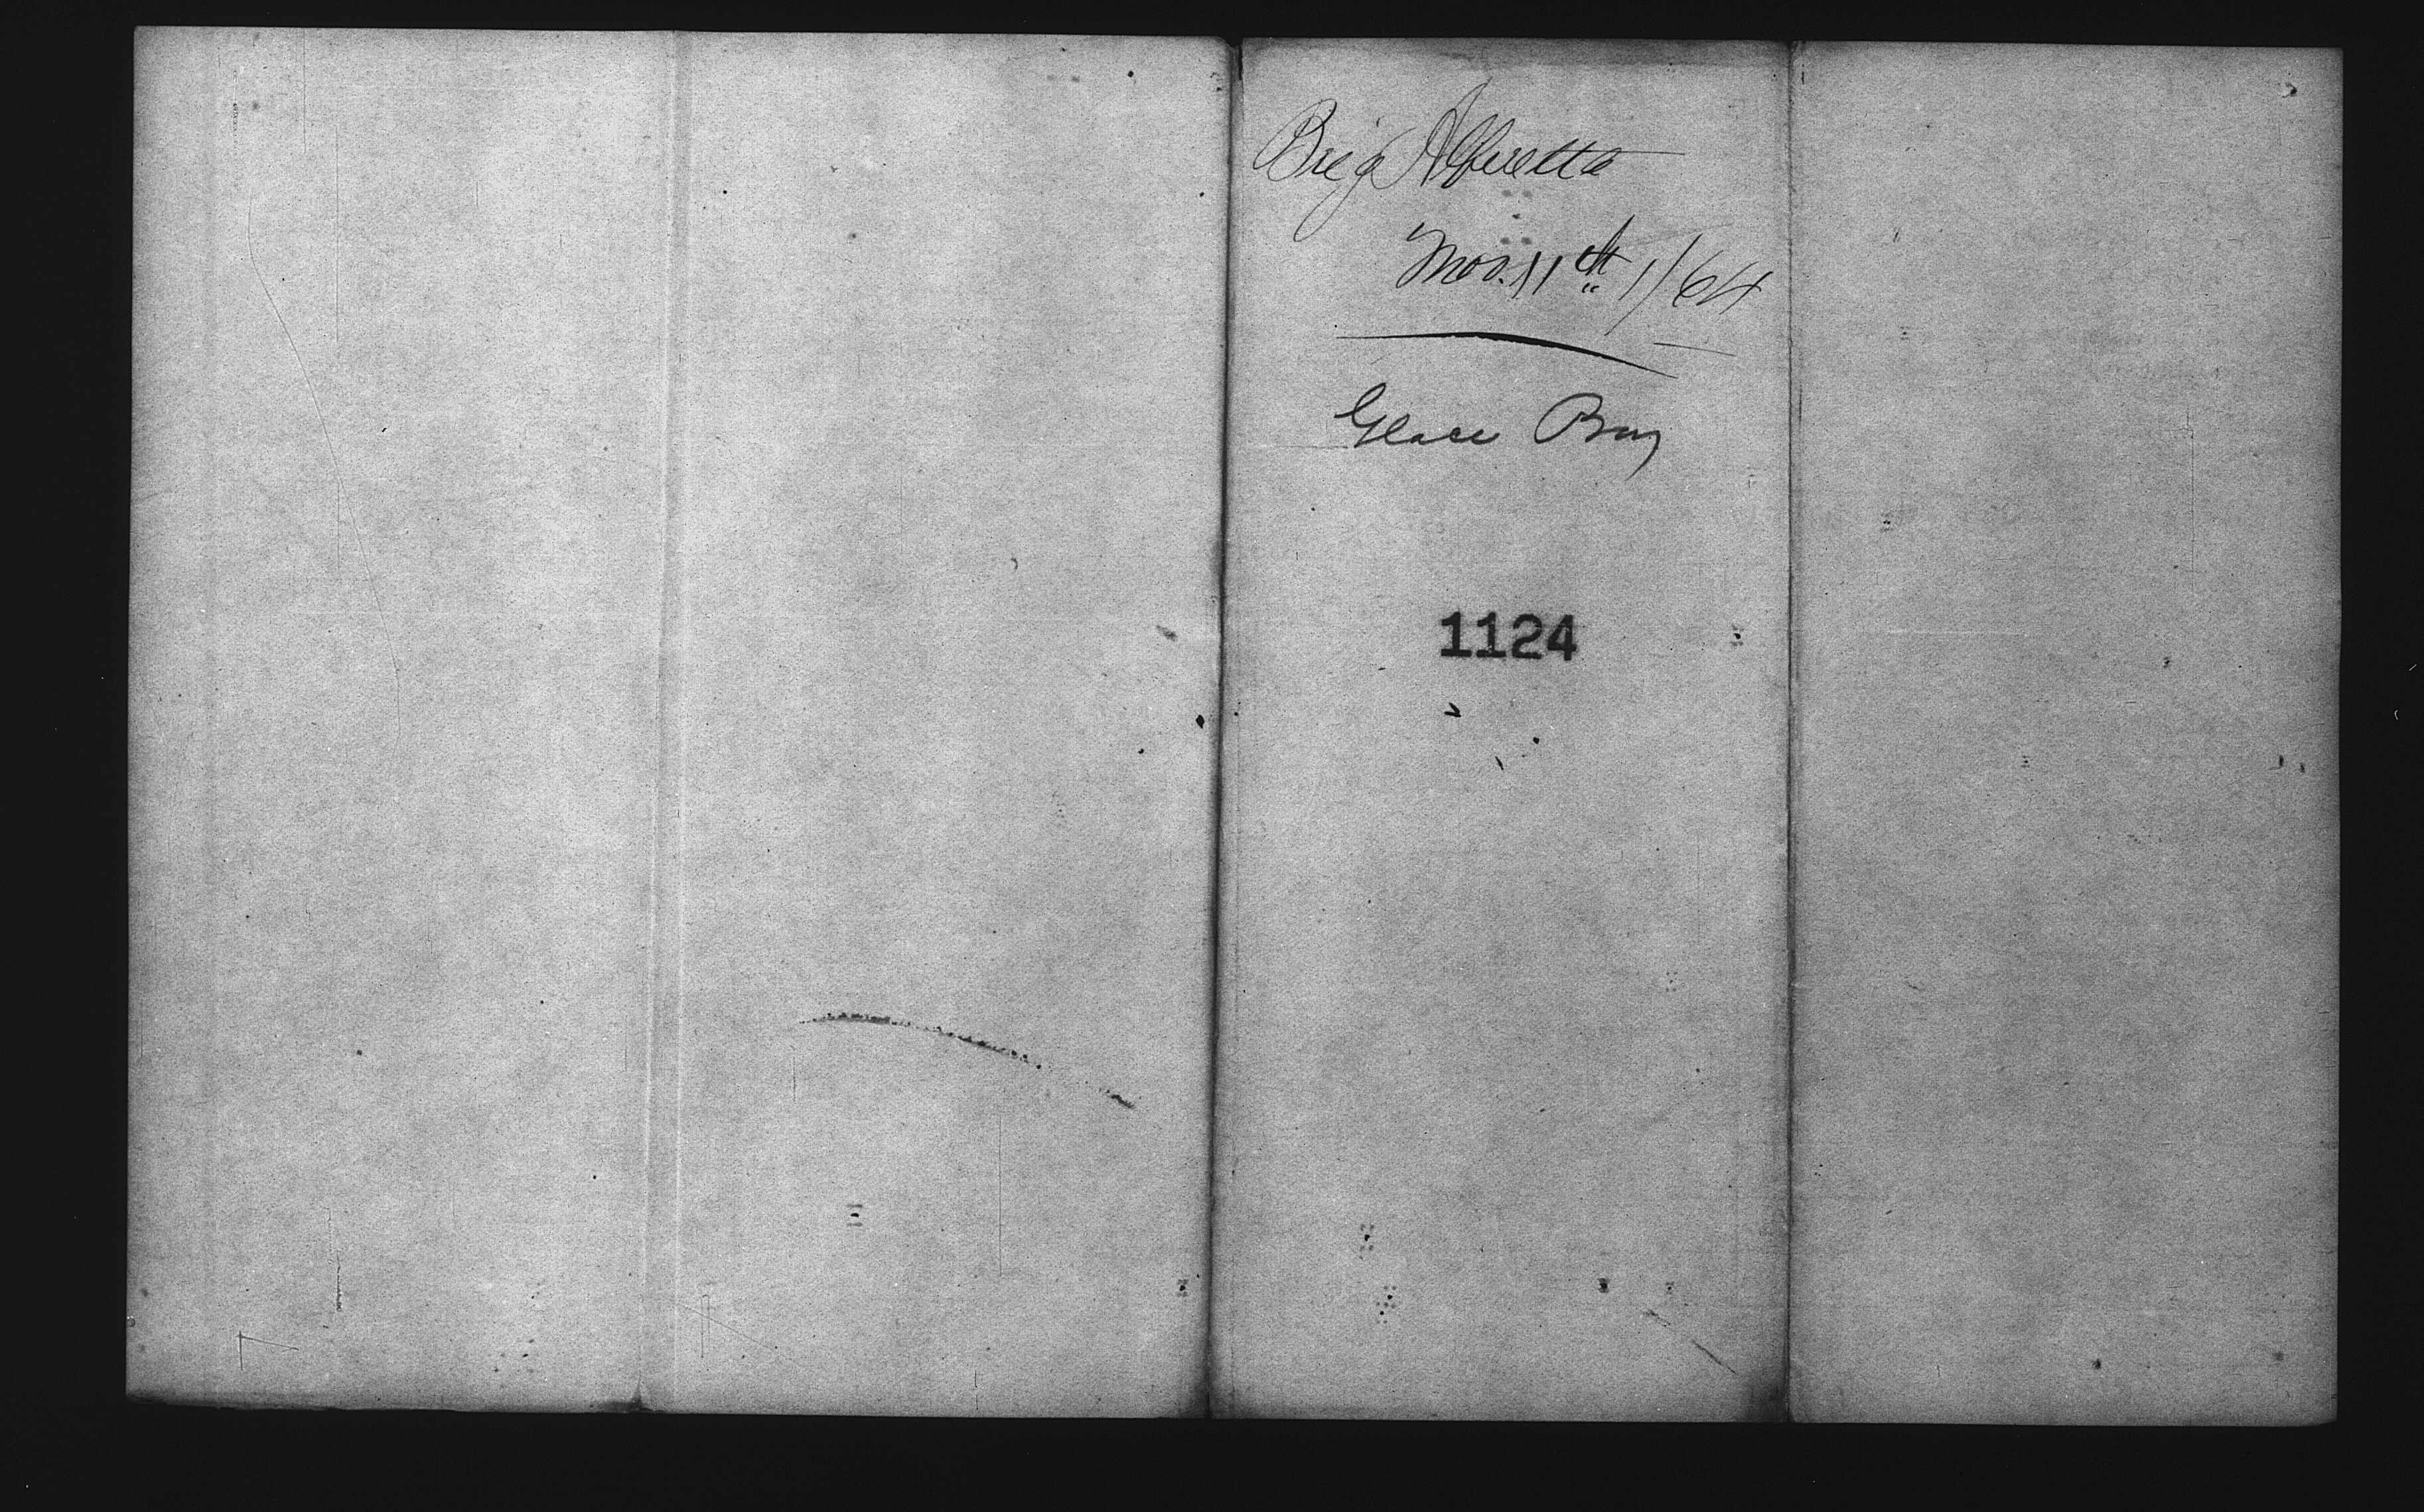 Brig Alfaretta
Nov. 11th 1/64
Glace Bay
1124